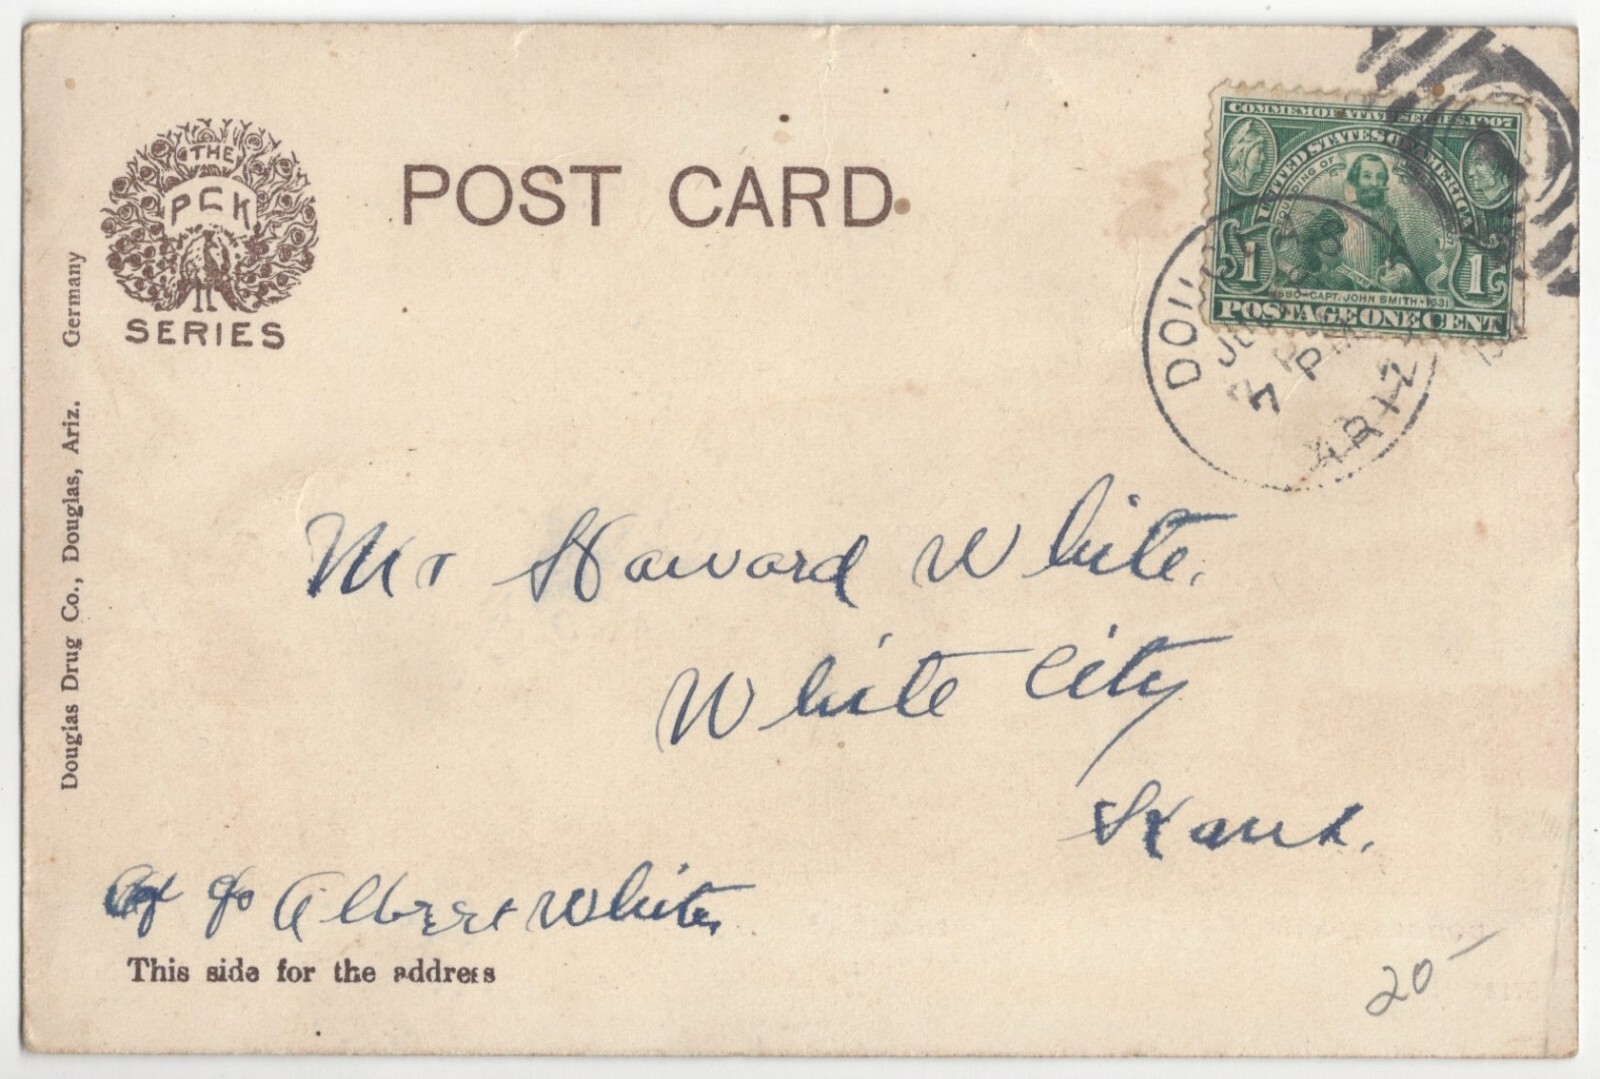 THE
PCK
SERIES
POST CARD
COMMEMORATIVE SERIES 1907
UNITED STATES OF AMERICA
FOUNDING OF
1580-CAPT. JOHN SMITH-1631
1 1
POSTAGE ONE CENT
7 PM
ARIZ
Douglas Drug Co., Douglas, Ariz. Germany
Mr Howard White.
White City
Kans.
c/o Albert White,
This side for the address
20-